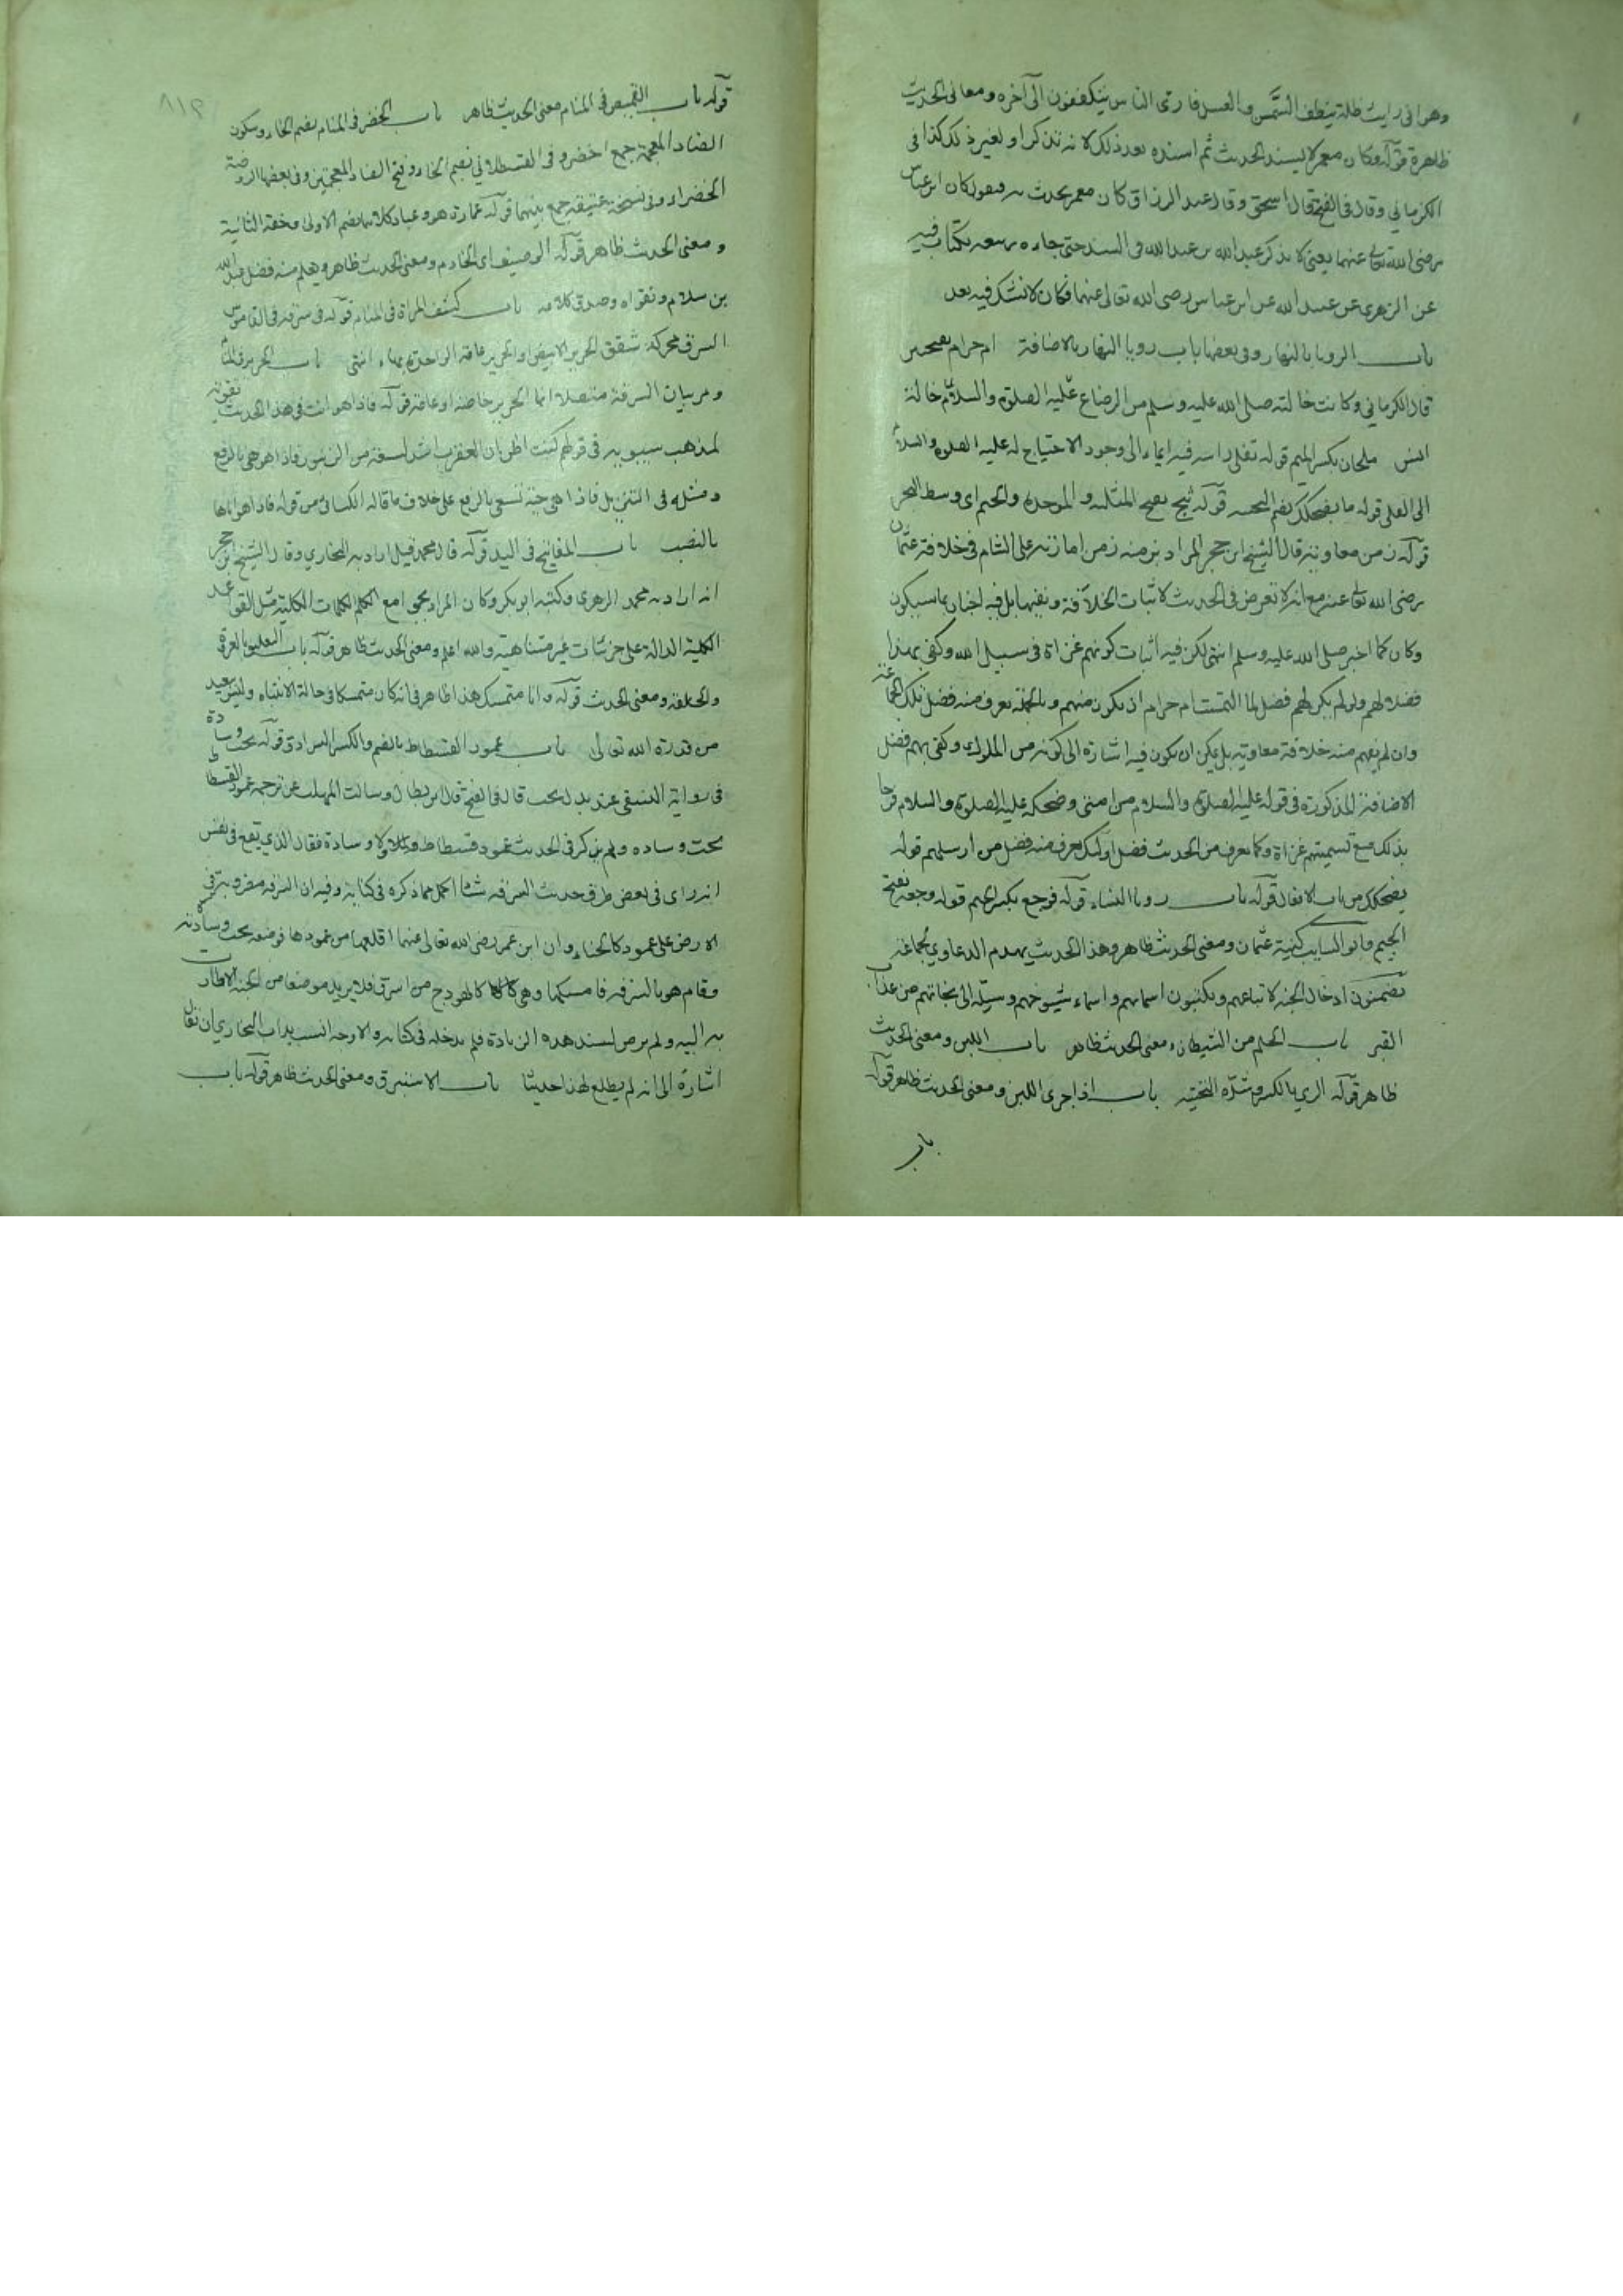 وهو اني رايت ظلة ينطف السمن والعسل فارى الناس يتكففون الى آخره ومعانى الحديث
ظاهرة قوله وكان معمر لا يسند الحديث ثم اسنده بعد ذلك لانه تذكر او لغير ذلك كذا فى
الكرماني وقال فى الفتح قال اسحق وقال عبد الرزاق كان معمر يحدث به فيقول كان ابن عباس
رضى الله تعالى عنهما يعنى لا يذكر عبيد الله بن عبد الله فى السند حتى جاءه زمعه بكتاب فيه
عن الزهرى عن عبيد الله عن ابن عباس رضى الله تعالى عنهما فكان لا نشك فيه بعد
باب الرويا بالنهار وفى بعضها باب رويا النهار بالاضافة ام حرام
قال الكرماني وكانت خالته صلى الله عليه وسلم من الرضاع عليه الصلوة والسلام خالة
انس ملحان بكسر الميم قوله تفلى راسه فيه ايماء الى وجود الاحتياج له عليه الصلوة والسلام
الى الفلى قوله ما يضحكك قوله ثبج بفتح المثلثة والموحدة والجيم اى وسط البحر
قوله زمن معاوية قال الشيخ ابن حجر المراد بزمنه زمن امارته على الشام فى خلافة عثمان
رضى الله تعالى عنه مع انه لا تعرض فى الحديث لاثبات الخلافة ونفيها بل فيه اخبار بما سيكون
وكان كما اخبر صلى الله عليه وسلم انتهى لكن فيه اثبات كونهم غزاة فى سبيل الله وكفى بهذا
فضلا لهم ولو لم يكن لهم فضل لما التمست ام حرام ان تكون منهم وبالجملة يعرف منه فضل تلك الجماعة
وان لم يفهم منه خلافة معاوية بل يمكن ان يكون فيه اشارة الى كونه من الملوك وكفى بهم فضل
الاضافة المذكورة فى قوله عليه الصلوة والسلام من امتى وضحكه عليه الصلوة والسلام فرحا
بذلك مع تسميتهم غزاة وكما يعرف من الحديث فضل اولئك يعرف منه فضل من ارسلهم قوله
يضحكك من باب الافعال قوله باب رويا النساء قوله فوجع بكسر الجيم قوله وجعه بفتح
الجيم وابو السايب كنية عثمان ومعنى الحديث ظاهر وهذا الحديث يهدم الدعاوي لجماعة
يضمنون ادخال الجنة لاتباعهم ويكتبون اسمائهم واسماء شيوخهم وسيلة الى نجاتهم من عذاب
القبر باب الحلم من الشيطان ومعنى الحديث ظاهر باب اللبن ومعنى الحديث
ظاهر قوله الري بالكسر وشدة التحتية باب اذا جرى اللبن ومعنى الحديث ظاهر قوله
باب
٨١٢
قوله باب القميص فى المنام معنى الحديث ظاهر باب الخضر فى المنام بضم الخاء وسكون
الضاد المعجمة جمع اخضر وفى القسطلاني بضم الخاء وفتح الضاد المعجمتين وفى بعضها الروضة
الخضراء وفى نسخة عتيقة جمع بينهما قوله عمارة هو وعباد كلاهما بضم الاولى وخفة الثانية
ومعنى الحديث ظاهر قوله الوصيف اى الخادم ومعنى الحديث ظاهر ويعلم منه فضل عبد الله
بن سلام وتقواه وصدق كلامه باب كشف المراة فى المنام قوله فى سرقة فى القاموس
السرق محركة شقق الحرير الابيض والحرير عامة الواحدة بهاء انتهى باب الحرير فى المنام
ومر بيان السرقة متصلا انها الحرير خاصة او عامة قوله فاذا هو انت فى هذا الحديث تقوية
لمذهب سيبويه فى قولهم كنت اظن ان العقرب اشد لسعة من الزنبور فاذا هو هي بالرفع
ومثله فى التنزيل فاذا هى حية تسعى بالرفع على خلاف ما قاله الكسائى من قوله فاذا هو اياها
بالنصب باب المفاتيح فى اليد قوله قال محمد قيل اراد به البخاري وقال الشيخ ابن حجر
انه اراد به محمد الزهرى وكنيته ابو بكر وكان المراد بجوامع الكلم الكلمات الكلية مثل القواعد
الكلية الدالة على جزئيات غير متناهية والله اعلم ومعنى الحديث ظاهر قوله باب التعليق بالعروة
والحلقة ومعنى الحديث قوله وانا متمسك هذا ظاهر فى انه كان متمسكا فى حالة الانتباه وليس بعيد
من قدرة الله تعالى باب عمود الفسطاط بالضم والكسر السرادق قوله تحت وسادة
فى رواية النسفى عند بدل تحت قال فى الفتح قال ابن بطال وسالت المهلب عن ترجمة عمود الفسطاط
تحت وسادة ولم يذكر فى الحديث عمود فسطاط ولا وسادة فقال الذي يقع فى نفسى
انه راى فى بعض طرق حديث السرقة شيئا اكمل مما ذكره فى كتابه وفيه ان السرقة مضروبة فى
الارض على عمود كالخباء وان ابن عمر رضى الله تعالى عنهما اقلعها من عمودها فوضعه تحت وسادته
وقام هو بالسرقة فامسكها وهى كالهودج من استبرق فلا يريد موضعا من الجنة الا طارت
به اليه ولم يرض لسند هذه الزيادة فلم يدخله فى كتابه والاوجه انسب بداب البخاري ان يقال
اشارة الى انه لم يطلع لهذا حديثا باب الاستبرق ومعنى الحديث ظاهر قوله باب